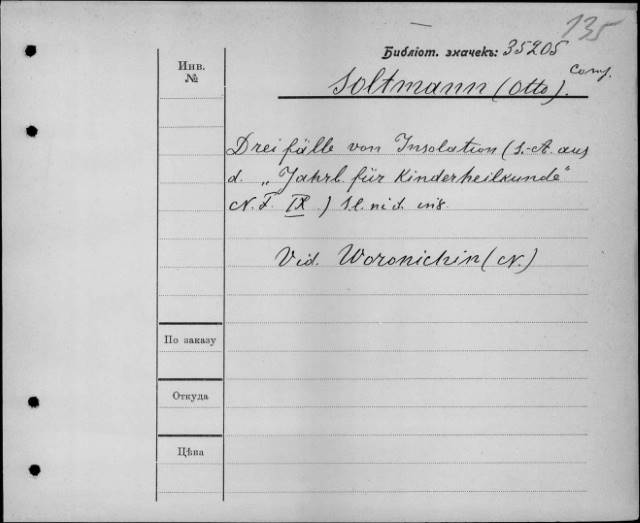 135
Библіот. значекъ: 35205
Инв.
№
Soltmann (Otto).
Drei fälle von Insolation (S.-A. aus
d. „Jahrb. für Kinderheilkunde“
N. F. IX.) Sl. nid. in8.
Vid. Woronichin (N.)
По заказу
Откуда
Цѣна